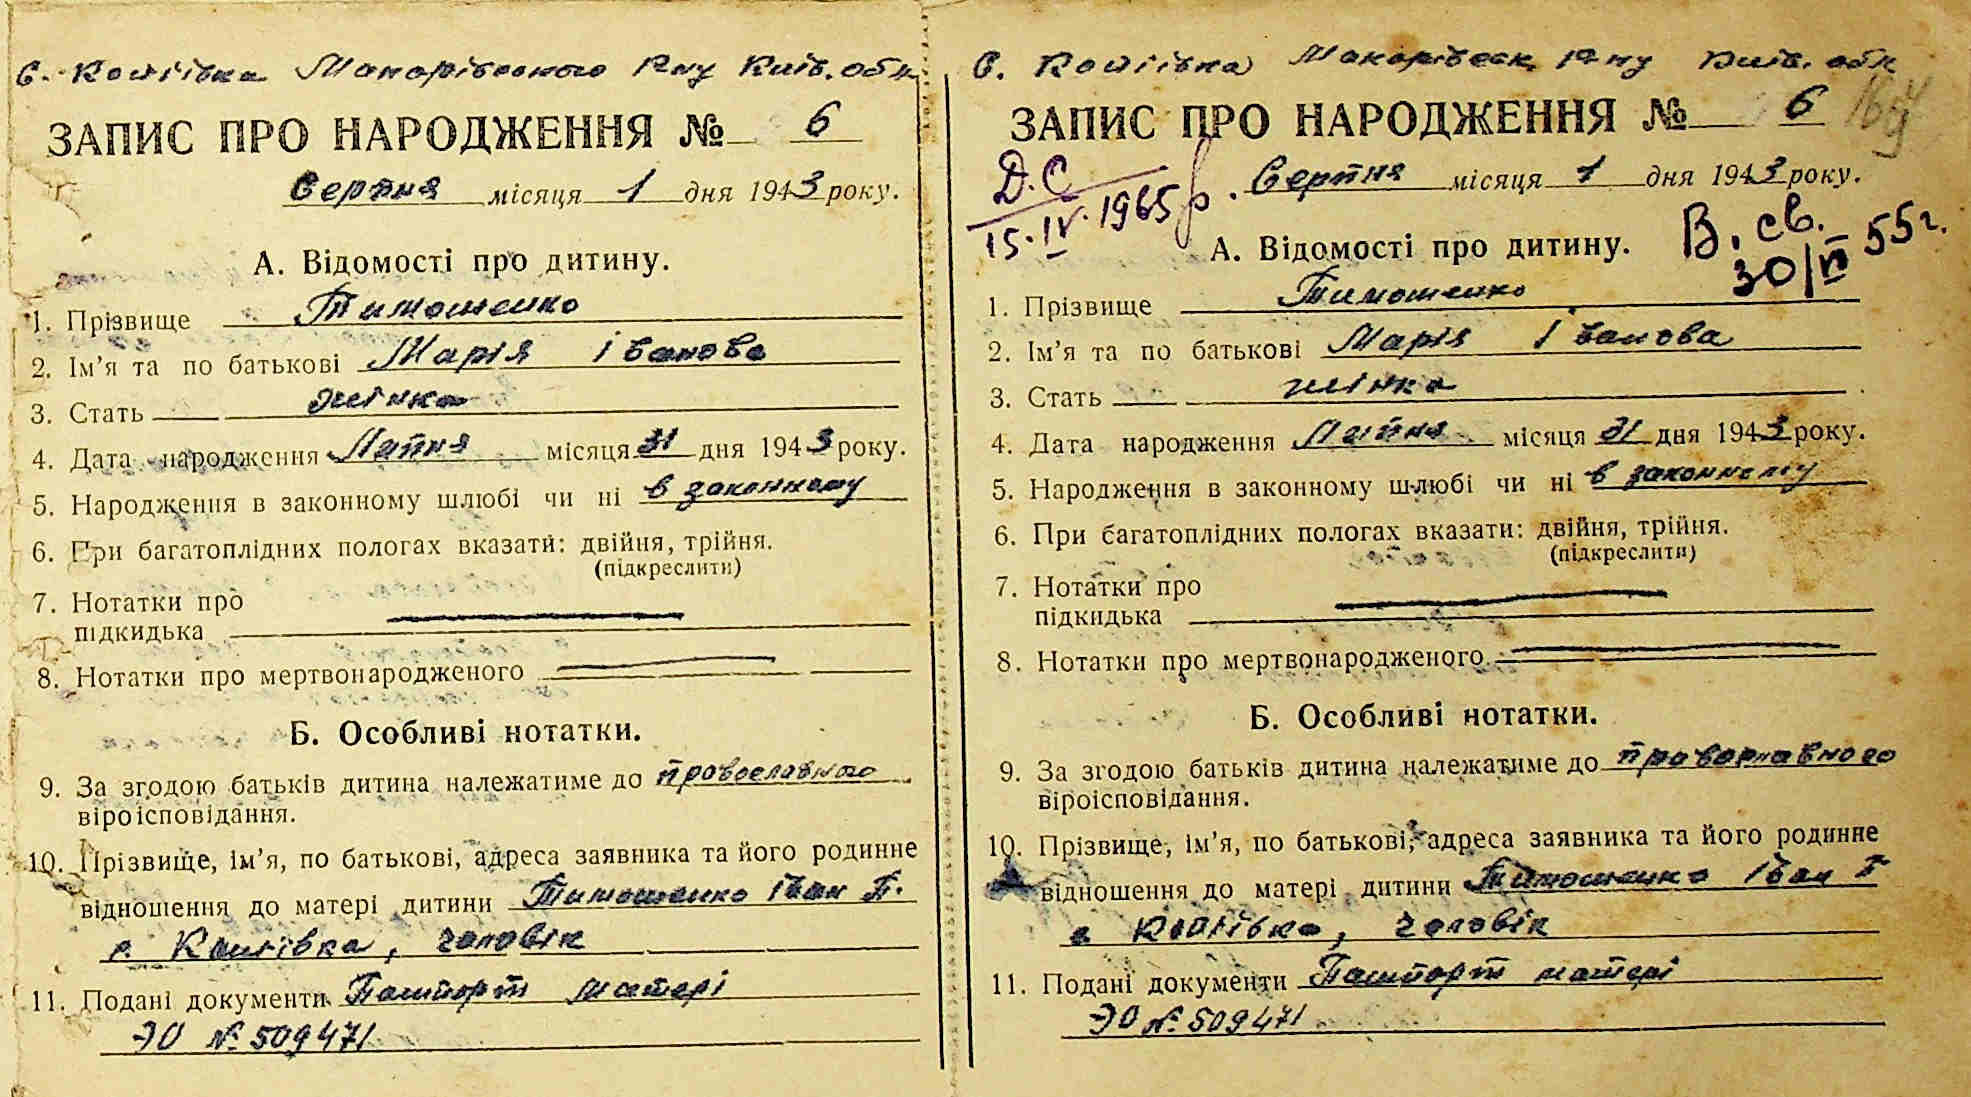 с. Копіївка Макарівського р-ну Київ. обл.
ЗАПИС ПРО НАРОДЖЕННЯ № 6
Серпня місяця 1 дня 1943 року.
А. Відомості про дитину.
1. Прізвище Тимошенко
2. Ім'я та по батькові Марія Іванова
3. Стать жінка
4. Дата народження Липня місяця 31 дня 1943 року.
5. Народження в законному шлюбі чи ні в законному
6. При багатоплідних пологах вказати: двійня, трійня.
(підкреслити)
7. Нотатки про
підкидька
8. Нотатки про мертвонародженого
Б. Особливі нотатки.
9. За згодою батьків дитина належатиме до православного
віроісповідання.
10. Прізвище, ім'я, по батькові, адреса заявника та його родинне
відношення до матері дитини Тимошенко Іван П.
с. Копіївка, чоловік
11. Подані документи Пашпорт матері
ЭО № 509471
с. Копіївка Макарівськ. р-ну Київ. обл
ЗАПИС ПРО НАРОДЖЕННЯ № 6
Д.С
15.IV.1965р.
Серпня місяця 1 дня 1943 року.
В. св.
30/VI 55г.
А. Відомості про дитину.
1. Прізвище Тимошенко
2. Ім'я та по батькові Марія Іванова
3. Стать жінка
4. Дата народження Липня місяця 31 дня 1943 року.
5. Народження в законному шлюбі чи ні в законному
6. При багатоплідних пологах вказати: двійня, трійня.
(підкреслити)
7. Нотатки про
підкидька
8. Нотатки про мертвонародженого
Б. Особливі нотатки.
9. За згодою батьків дитина належатиме до православного
віроісповідання.
10. Прізвище, ім'я, по батькові, адреса заявника та його родинне
відношення до матері дитини Тимошенко Іван П
с Копіївка, чоловік
11. Подані документи Пашпорт матері
ЭО № 509471